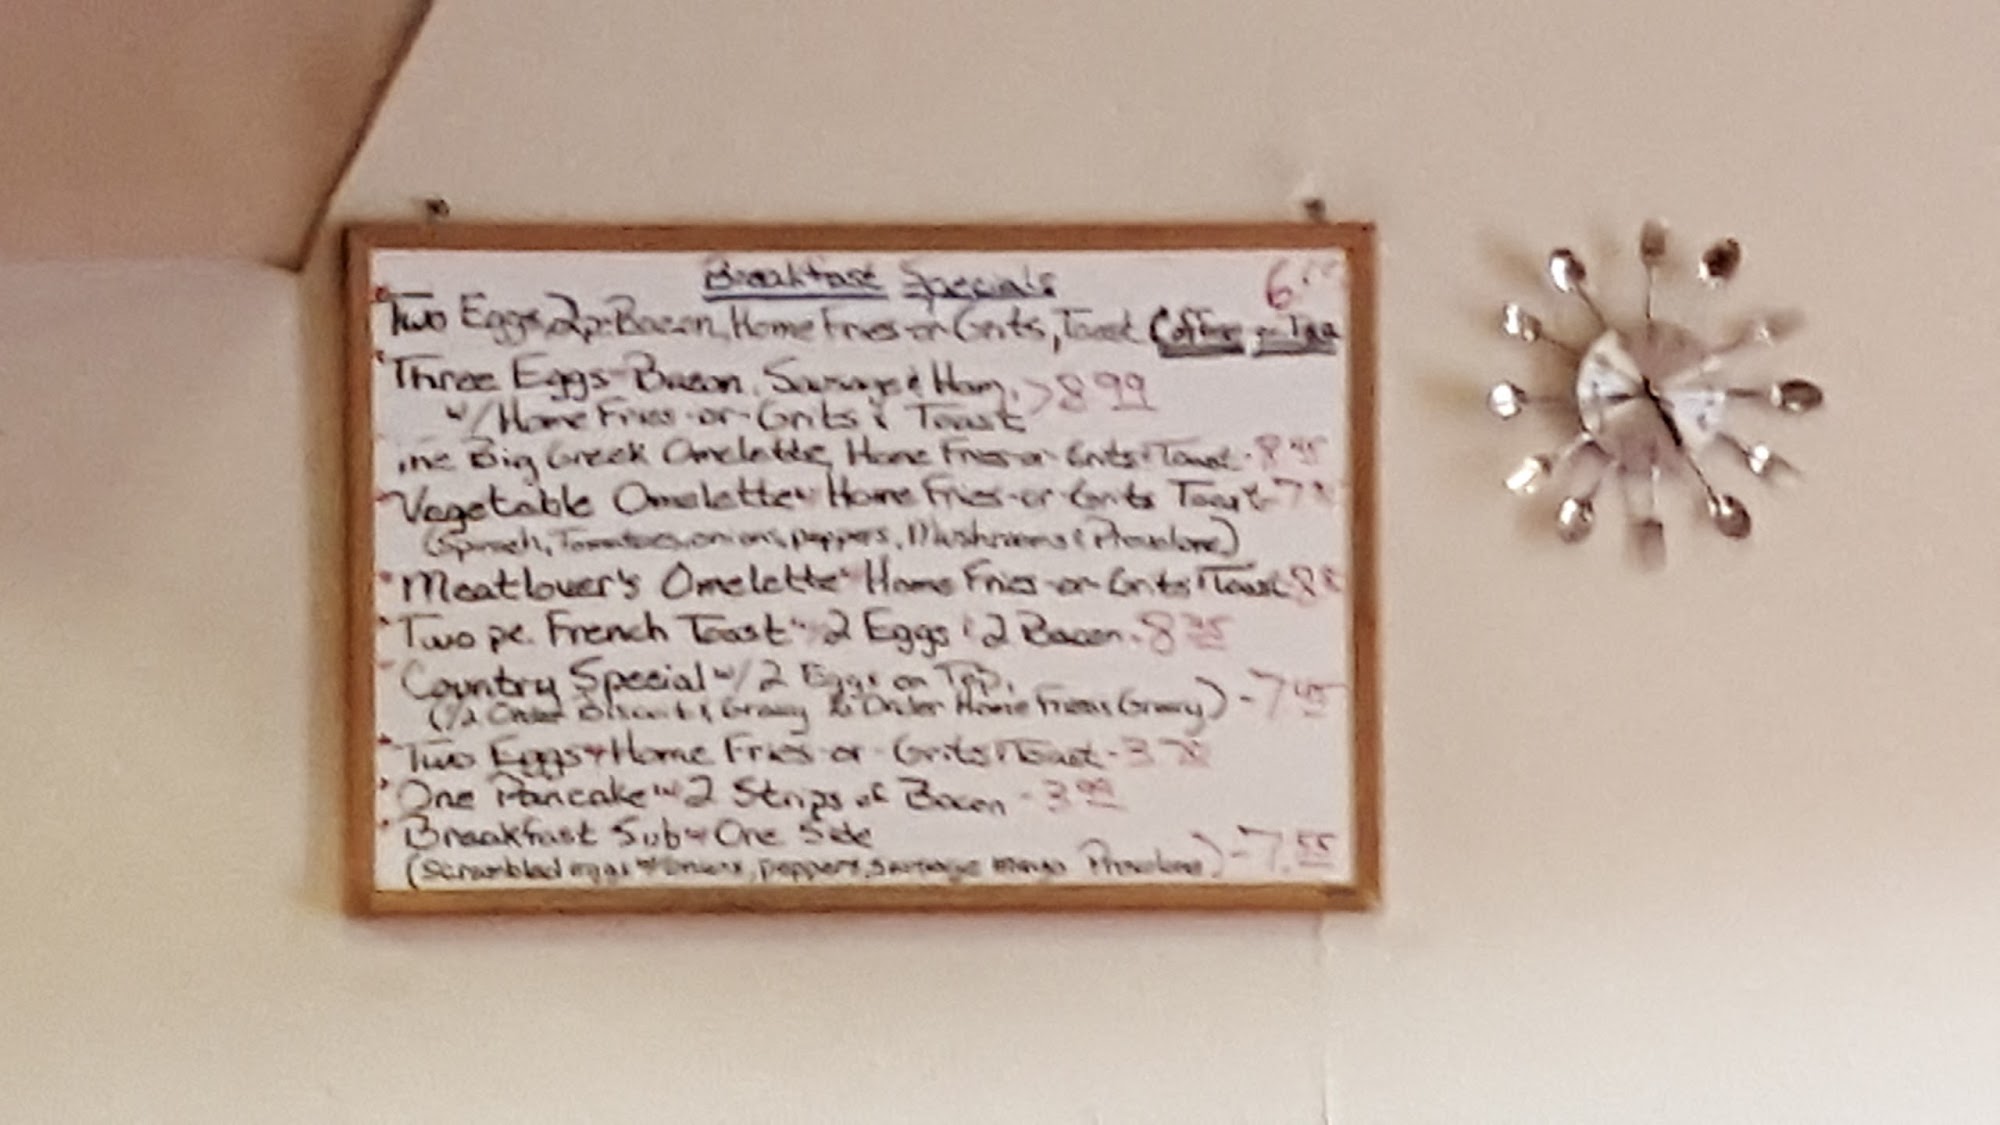 Breakfast Specials
Two Eggs, 2pc Bacon, Home Fries or Grits, Toast Coffee or Tea
Three Eggs Bacon, Sausage & Ham, >8 99
w/ Home Fries -or- Grits & Toast
Big Greek Omelette, Home Fries or Grits & Toast - 8
Vegetable Omelette w/ Home Fries -or- Grits Toast - 7
(Spinach, Tomatoes, onions, peppers, Mushrooms & Provolone)
Meatlover's Omelette w/ Home Fries -or- Grits & Toast 8
Two pc. French Toast w/ 2 Eggs & 2 Bacon - 8
Country Special w/ 2 Eggs on Top,
(1/2 Order Biscuits & Gravy 1/2 Order Home Fries & Gravy) - 7
Two Eggs Home Fries -or- Grits & Toast - 3
One Pancake w/ 2 Strips of Bacon - 3 99
Breakfast Sub w/ One Side
(Scrambled eggs w/ onions, peppers, sausage Provolone) - 7.55